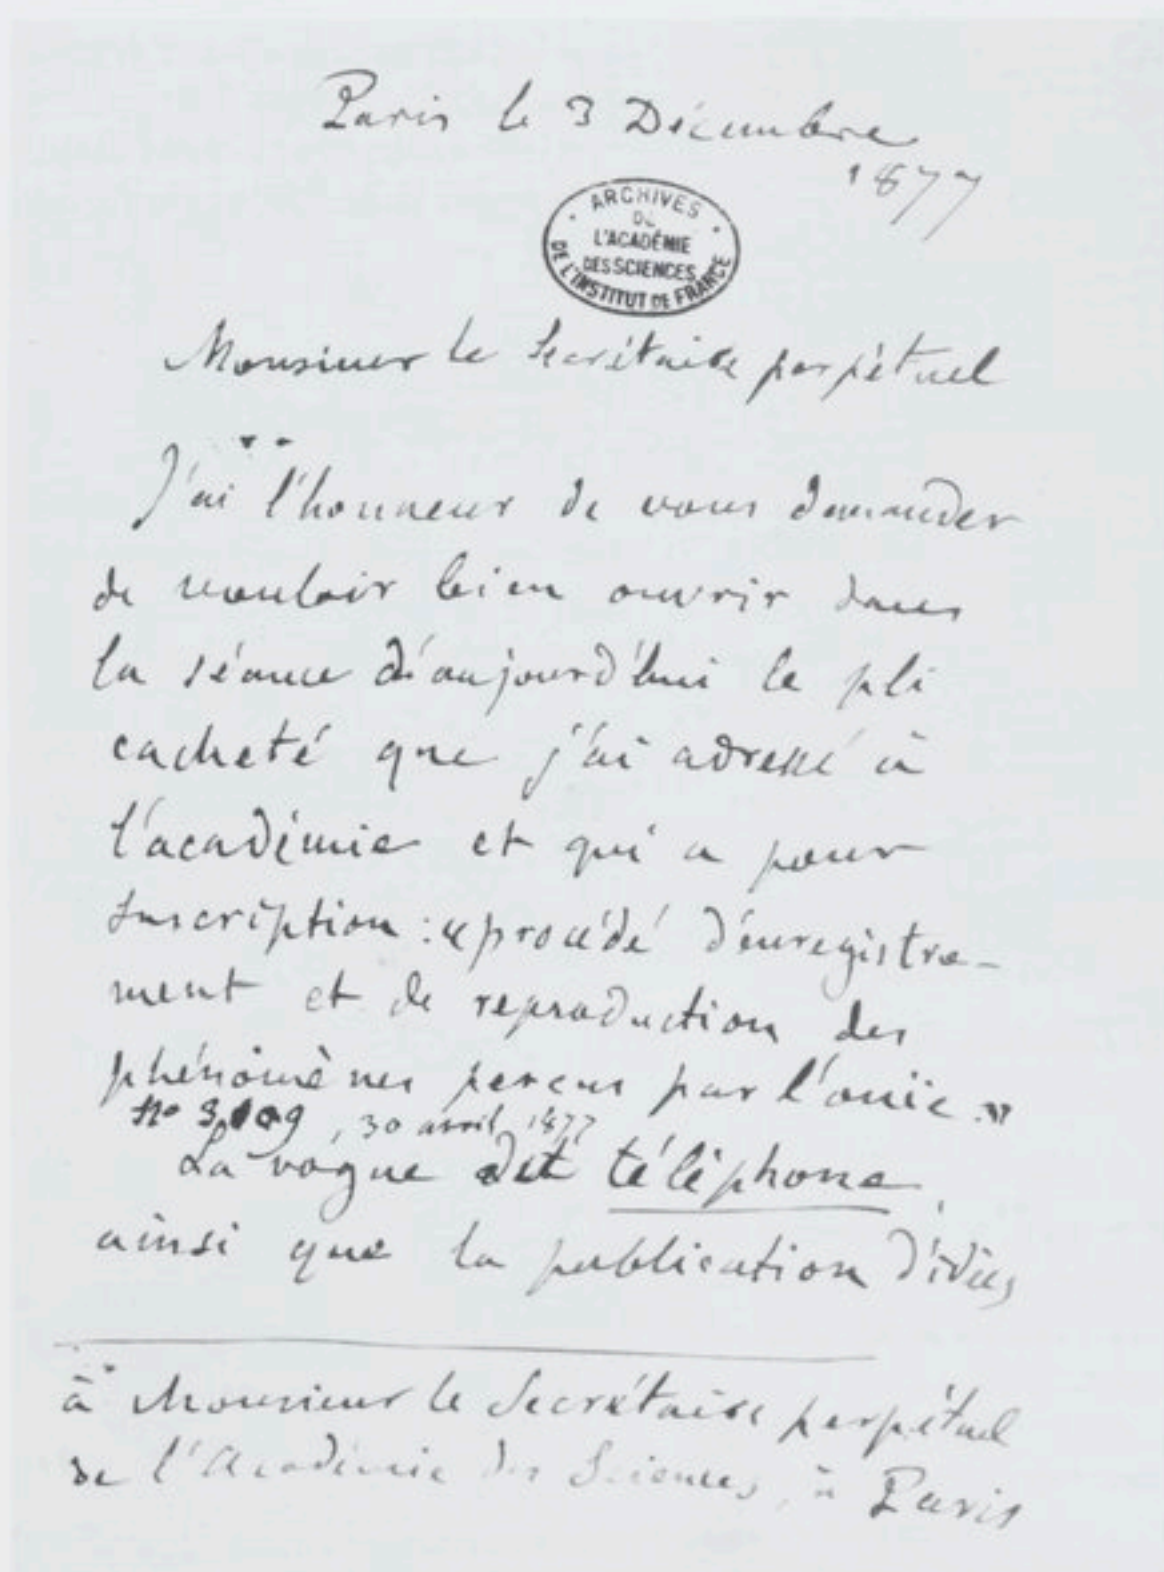 Paris le 3 Décembre
1877
ARCHIVES
DE
L'ACADÉMIE
DES SCIENCES
DE L'INSTITUT DE FRANCE
Monsieur le Secrétaire perpétuel
J'ai l'honneur de vous demander
de vouloir bien ouvrir dans
la séance d'aujourd'hui le pli
cacheté que j'ai adressé à
l'académie et qui a pour
suscription : « procédé d'enregistre-
ment et de reproduction des
phénomènes perçus par l'ouïe »
No 3109, 30 avril 1877
La vogue du téléphone,
ainsi que la publication d'idées,
à Monsieur le Secrétaire perpétuel
de l'Académie des Sciences, à Paris